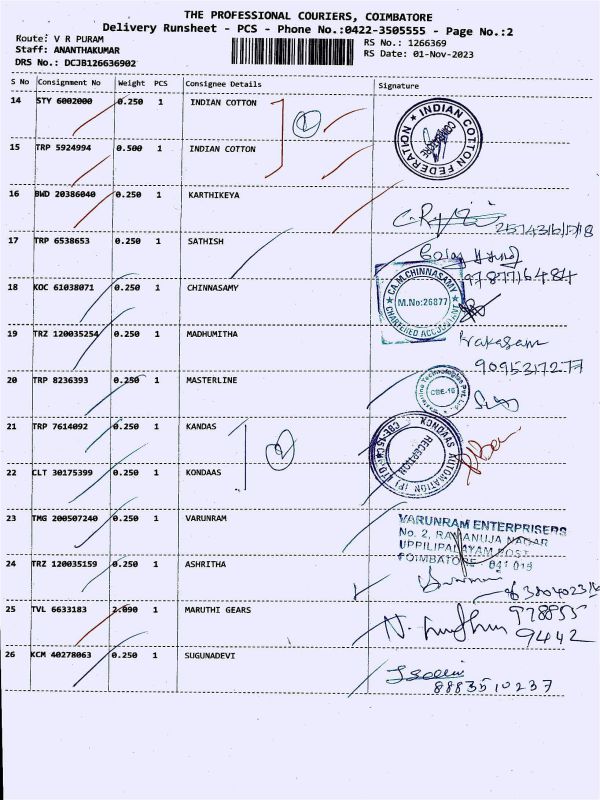 THE PROFESSIONAL COURIERS, COIMBATORE
Delivery Runsheet - PCS - Phone No.:0422-3505555 - Page No.:2
Route: V R PURAM
RS No.: 1266369
Staff: ANANTHAKUMAR
RS Date: 01-Nov-2023
DRS No.: DCJB126636902
S No Consignment No Weight PCS Consignee Details Signature
14 STY 6002000 0.250 1 INDIAN COTTON
2
INDIAN COTTON FEDERATION
COIMBATORE
15 TRP 5924994 0.500 1 INDIAN COTTON
16 BWD 20386040 0.250 1 KARTHIKEYA
17 TRP 6538653 0.250 1 SATHISH
9787716484
18 KOC 61038071 0.250 1 CHINNASAMY
CA.M.CHINNASAMY
M.No:26877
CHARTERED ACCOUNTANT
19 TRZ 120035254 0.250 1 MADHUMITHA
9095317277
20 TRP 8236393 0.250 1 MASTERLINE
CBE-15
21 TRP 7614092 0.250 1 KANDAS
2
KONDAAS AUTOMATION (P) LTD.
RECEPTION
CBE-15
22 CLT 30175399 0.250 1 KONDAAS
23 TMG 200507240 0.250 1 VARUNRAM
VARUNRAM ENTERPRISERS
No. 2, RAMANUJA NAGAR
UPPILIPALAYAM POST
COIMBATORE 641 015
24 TRZ 120035159 0.250 1 ASHRITHA
25 TVL 6633183 2.090 1 MARUTHI GEARS
978955
9442
26 KCM 40278063 0.250 1 SUGUNADEVI
8883510237